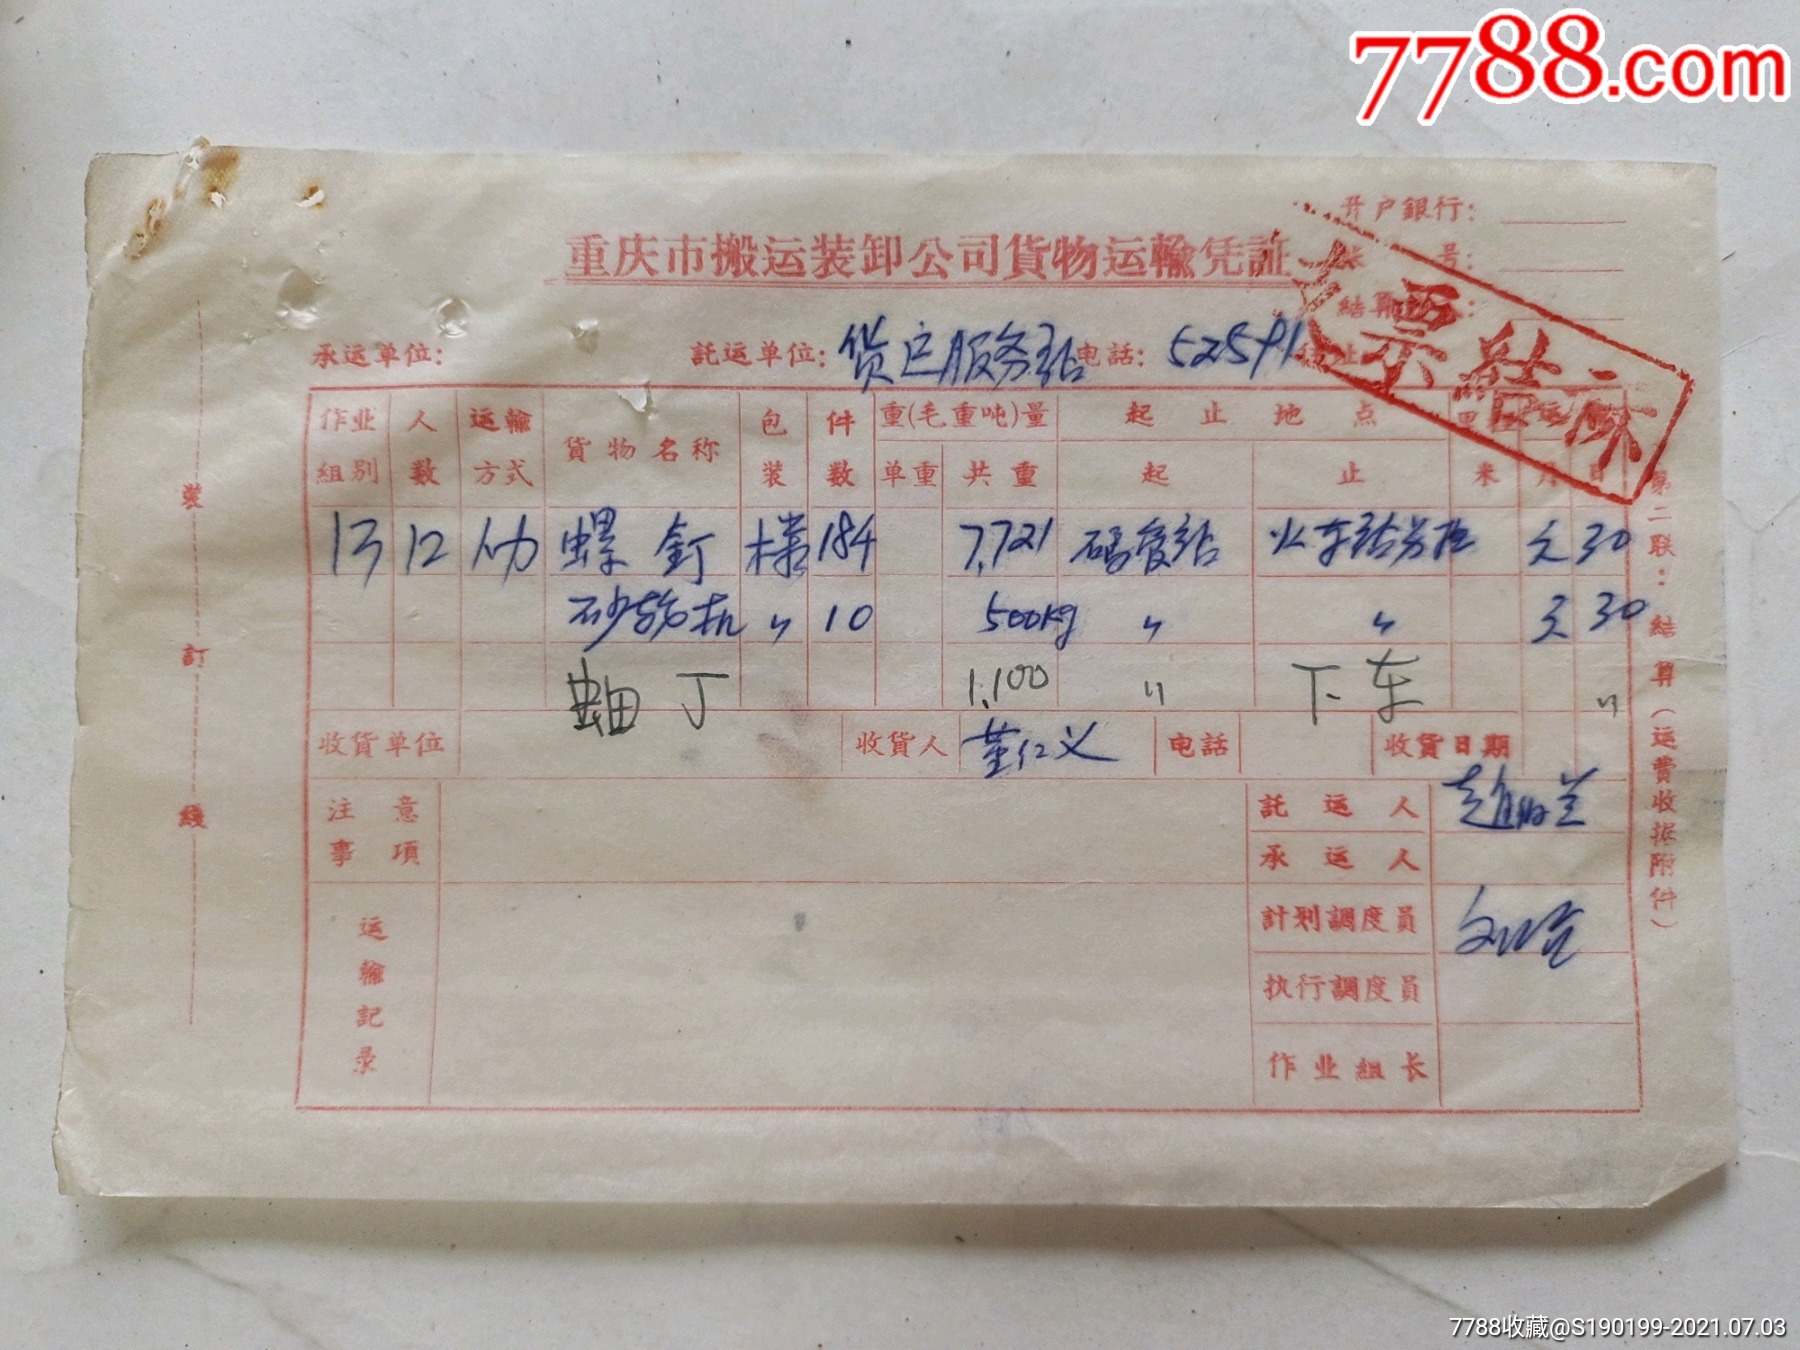 7788.com
开户銀行:
重庆市搬运装卸公司貨物运輸凭証
号:
結算
承运单位: 託运单位: 货户服务站 电話: 52591
作业組别 人数 运輸方式 貨物名称 包装 件数 重(毛重吨)量 单重 共重 起止地点 起 止 米 月 日
13 12 螺釘 184 7.721 30
砂轮机 〃 10 500kg 〃 〃 30
丁 1.100 〃 下车 〃
收貨单位 收貨人 董仁义 电話 收貨日期
注意事項
託运人
承运人
計划調度員
执行調度員
作业組长
运輸記录
装訂綫
第二联:結算(运費收据附件)
7788收藏@S190199-2021.07.03